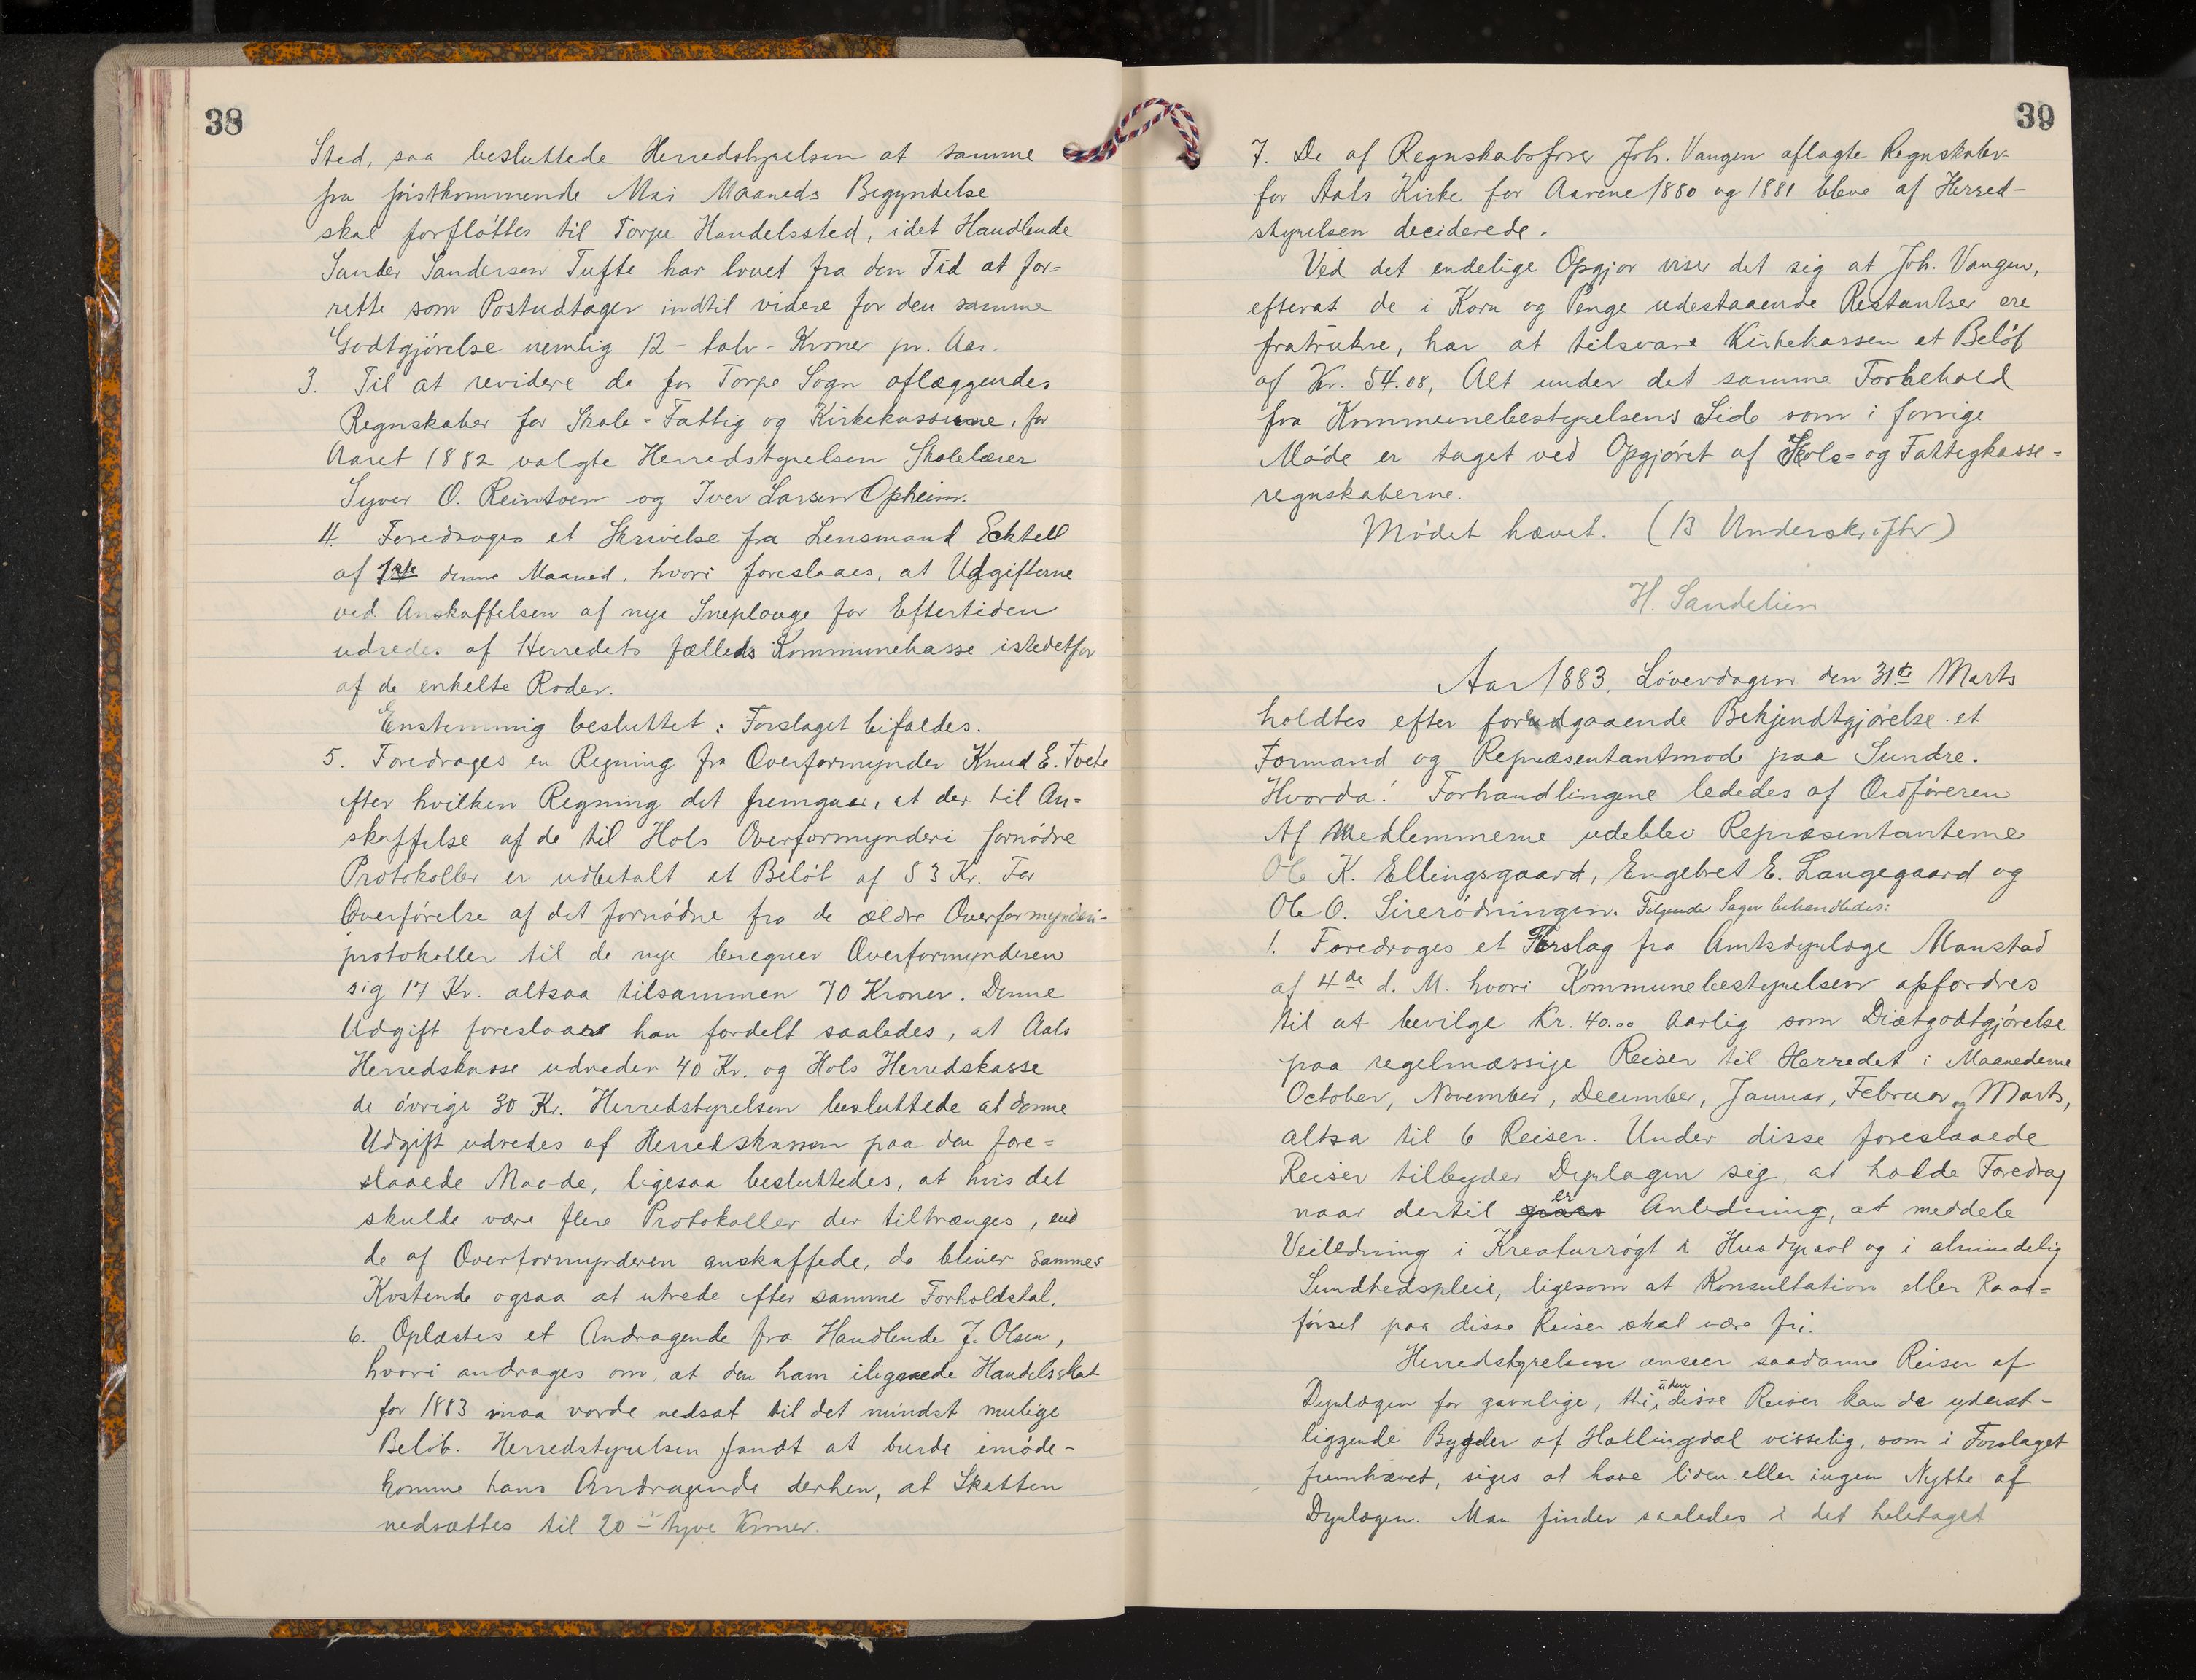 38
Sted, saa besluttede Herredstyrelsen at samme
fra førstkommende Mai Maaneds Begyndelse
skal forfløttes til Torpe Handelssted, idet Handlende
Sander Sandersen Tufte har lovet fra den Tid at for-
rette som Postudtager indtil videre for den samme
Godtgjørelse nemlig 12 - tolv - Kroner pr. Aar.
3. Til at revidere de for Torpe Sogn aflæggendes
Regnskaber for Skole - Fattig og Kirkekasserne, for
Aaret 1882 valgte Herredstyrelsen Skolelærer
Syver O. Reintoen og Iver Larsen Opheim.
4. Foredroges et Skrivelse fra Lensmand Ecktell
af 1ste denne Maaned, hvori foreslaaes, at Udgifterne
ved Anskaffelsen af nye Sneplouge for Eftertiden
udredes af Herredets fælleds Kommunekasse istedetfor
af de enkelte Roder.
Enstemmig besluttet: Forslaget bifaldes.
5. Foredroges en Regning fra Overformynder Knud E. Tvete
efter hvilken Regning det fremgaar, at der til An=
skaffelse af de til Hols Overformynderi fornødne
Protokoller er udbetalt et Beløb af 53 Kr. For
Overførelse af det fornødne fra de ældre Overformynderi-
protokoller til de nye beregner Overformynderen
sig 17 Kr. altsaa tilsammen 70 Kroner. Denne
Udgift foreslaaes han fordelt saaledes, at Aals
Herredskasse udreder 40 Kr. og Hols Herredskasse
de øvrige 30 Kr. Herredstyrelsen besluttede at denne
Udgift udredes af Herredskassen paa den fore=
slaaede Maade, ligesaa besluttedes, at hvis det
skulde være flere Protokoller der tiltrænges, end
de af Overformynderen anskaffede, da bliver sammes
Kostende ogsaa at utrede efter samme Forholdstal.
6. Oplæstes et Andragende fra Handlende J. Olsen,
hvori andrages om, at den ham ilignede Handelsskat
for 1883 maa vorde nedsat til det mindst mulige
Beløb. Herredstyrelsen fandt at burde imøde-
komme hans Andragende derhen, at Skatten
nedsættes til 20 - tyve Kroner.
39
7. De af Regnskabsfører Joh. Vangen aflagte Regnskaber
for Aals Kirke for Aarene 1880 og 1881 bleve af Herred-
styrelsen deciderede.
Ved det endelige Opgjør viser det sig at Joh. Vangen,
efterat de i Korn og Penge udestaaende Restantser ere
fratrukne, har at tilsvare Kirkekassen et Beløb
af Kr. 54.08, Alt under det samme Forbehold
fra Kommunebestyrelsens Side som i forrige
Møde er taget ved Opgjøret af Skole= og Fattigkasse=
regnskaberne.
Mødet hævet. (13 Underskrifter)
H. Sandelien
Aar 1883, Løverdagen den 31te Marts
holdtes efter forudgaaende Bekjendtgjørelse et
Formand og Repræsentantmøde paa Sundre.
Hvorda! Forhandlingene lededes af Ordføreren
Af Medlemmerne udeblev Repræsentanterne
Ole K. Ellingsgaard, Engebret E. Langegaard og
Ole O. Sirerødningen. Følgende Sager behandledes:
1. Foredroges et Forslag fra Amtsdyrlæge Manstad
af 4de d. M. hvori Kommunebestyrelsen opfordres
til at bevilge Kr. 40.00 aarlig som Diætgodtgjørelse
paa regelmæssige Reiser til Herredet i Maanederne
October, November, December, Januar, Februar og Marts,
altsa til 6 Reiser. Under disse foreslaaede
Reiser tilbyder Dyrlægen sig, at holde Foredrag
naar dertil er Anledning, at meddele
Veiledning i Kreaturrøgt i Husdyravl og i almindelig
Sundhedspleie, ligesom at Konsultation eller Raad=
førsel paa disse Reiser skal være fri.
Herredstyrelsen anseer saadanne Reiser af
Dyrlægen for gavnlige, thi uden disse Reiser kan de yderst-
liggende Bygder af Hallingdal visselig, som i Forslaget
fremhævet, siges at have liden eller ingen Nytte af
Dyrlægen. Man finder saaledes i det heletaget